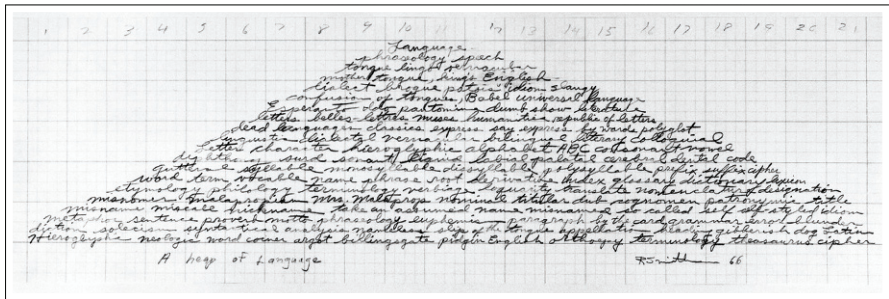 1 2 3 4 5 6 7 8 9 10 11 12 13 14 15 16 17 18 19 20 21
Language
phraseology speech
tongue lingo vernacular
mother tongue, King's English
dialect brogue patois idiom slangy
confusion of tongues, Babel universal language
Esperanto Ido pantomime dumb show literature
letters belles-lettres muses humanities republic of letters
dead languages classics express say express by words polyglot
linguistic dialectal vernacular bilingual literary colloquial
letter character hieroglyphic alphabet ABC consonant vowel
diphthong surd sonant liquid labial palatal cerebral dental code
guttural syllable monosyllable dissyllable polysyllable prefix suffix cipher
word term vocable name phrase root derivative index glossary dictionary lexicon
etymology philology terminology verbiage loquacity translate nomenclature designation
misnomer malapropism Mrs. Malaprop nominal titular dub cognomen patronymic title
misname miscall nickname take an assumed name misnamed so-called self-styled idiom
metaphor sentence proverb motto phraseology euphemism paragraph by the card grammar error blunder
diction solecism syntactical analysis nameless slip of the tongue appellation heading gibberish dog Latin
Hieroglyphic neologic word coiner argot billingsgate pidgin English orthoepy terminology thesaurus cipher
A heap of Language
R Smithson 66